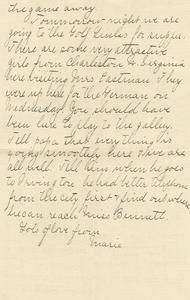 the game away.
Tomorrow night we are
going to the Golf Links for supper.
There are some very attractive
girls from Charleston W. Virginia
here visiting Mrs Eastman. They
were up here for the German on
Wednesday. You should have
been here to play to the gallery.
Tell papa that everything is
going smoothly here & we are
all well. Tell him when he goes
to Irvington he had better telephone
from the city first & find out where
he can reach Miss Bennett.
Lots of love from
Marie